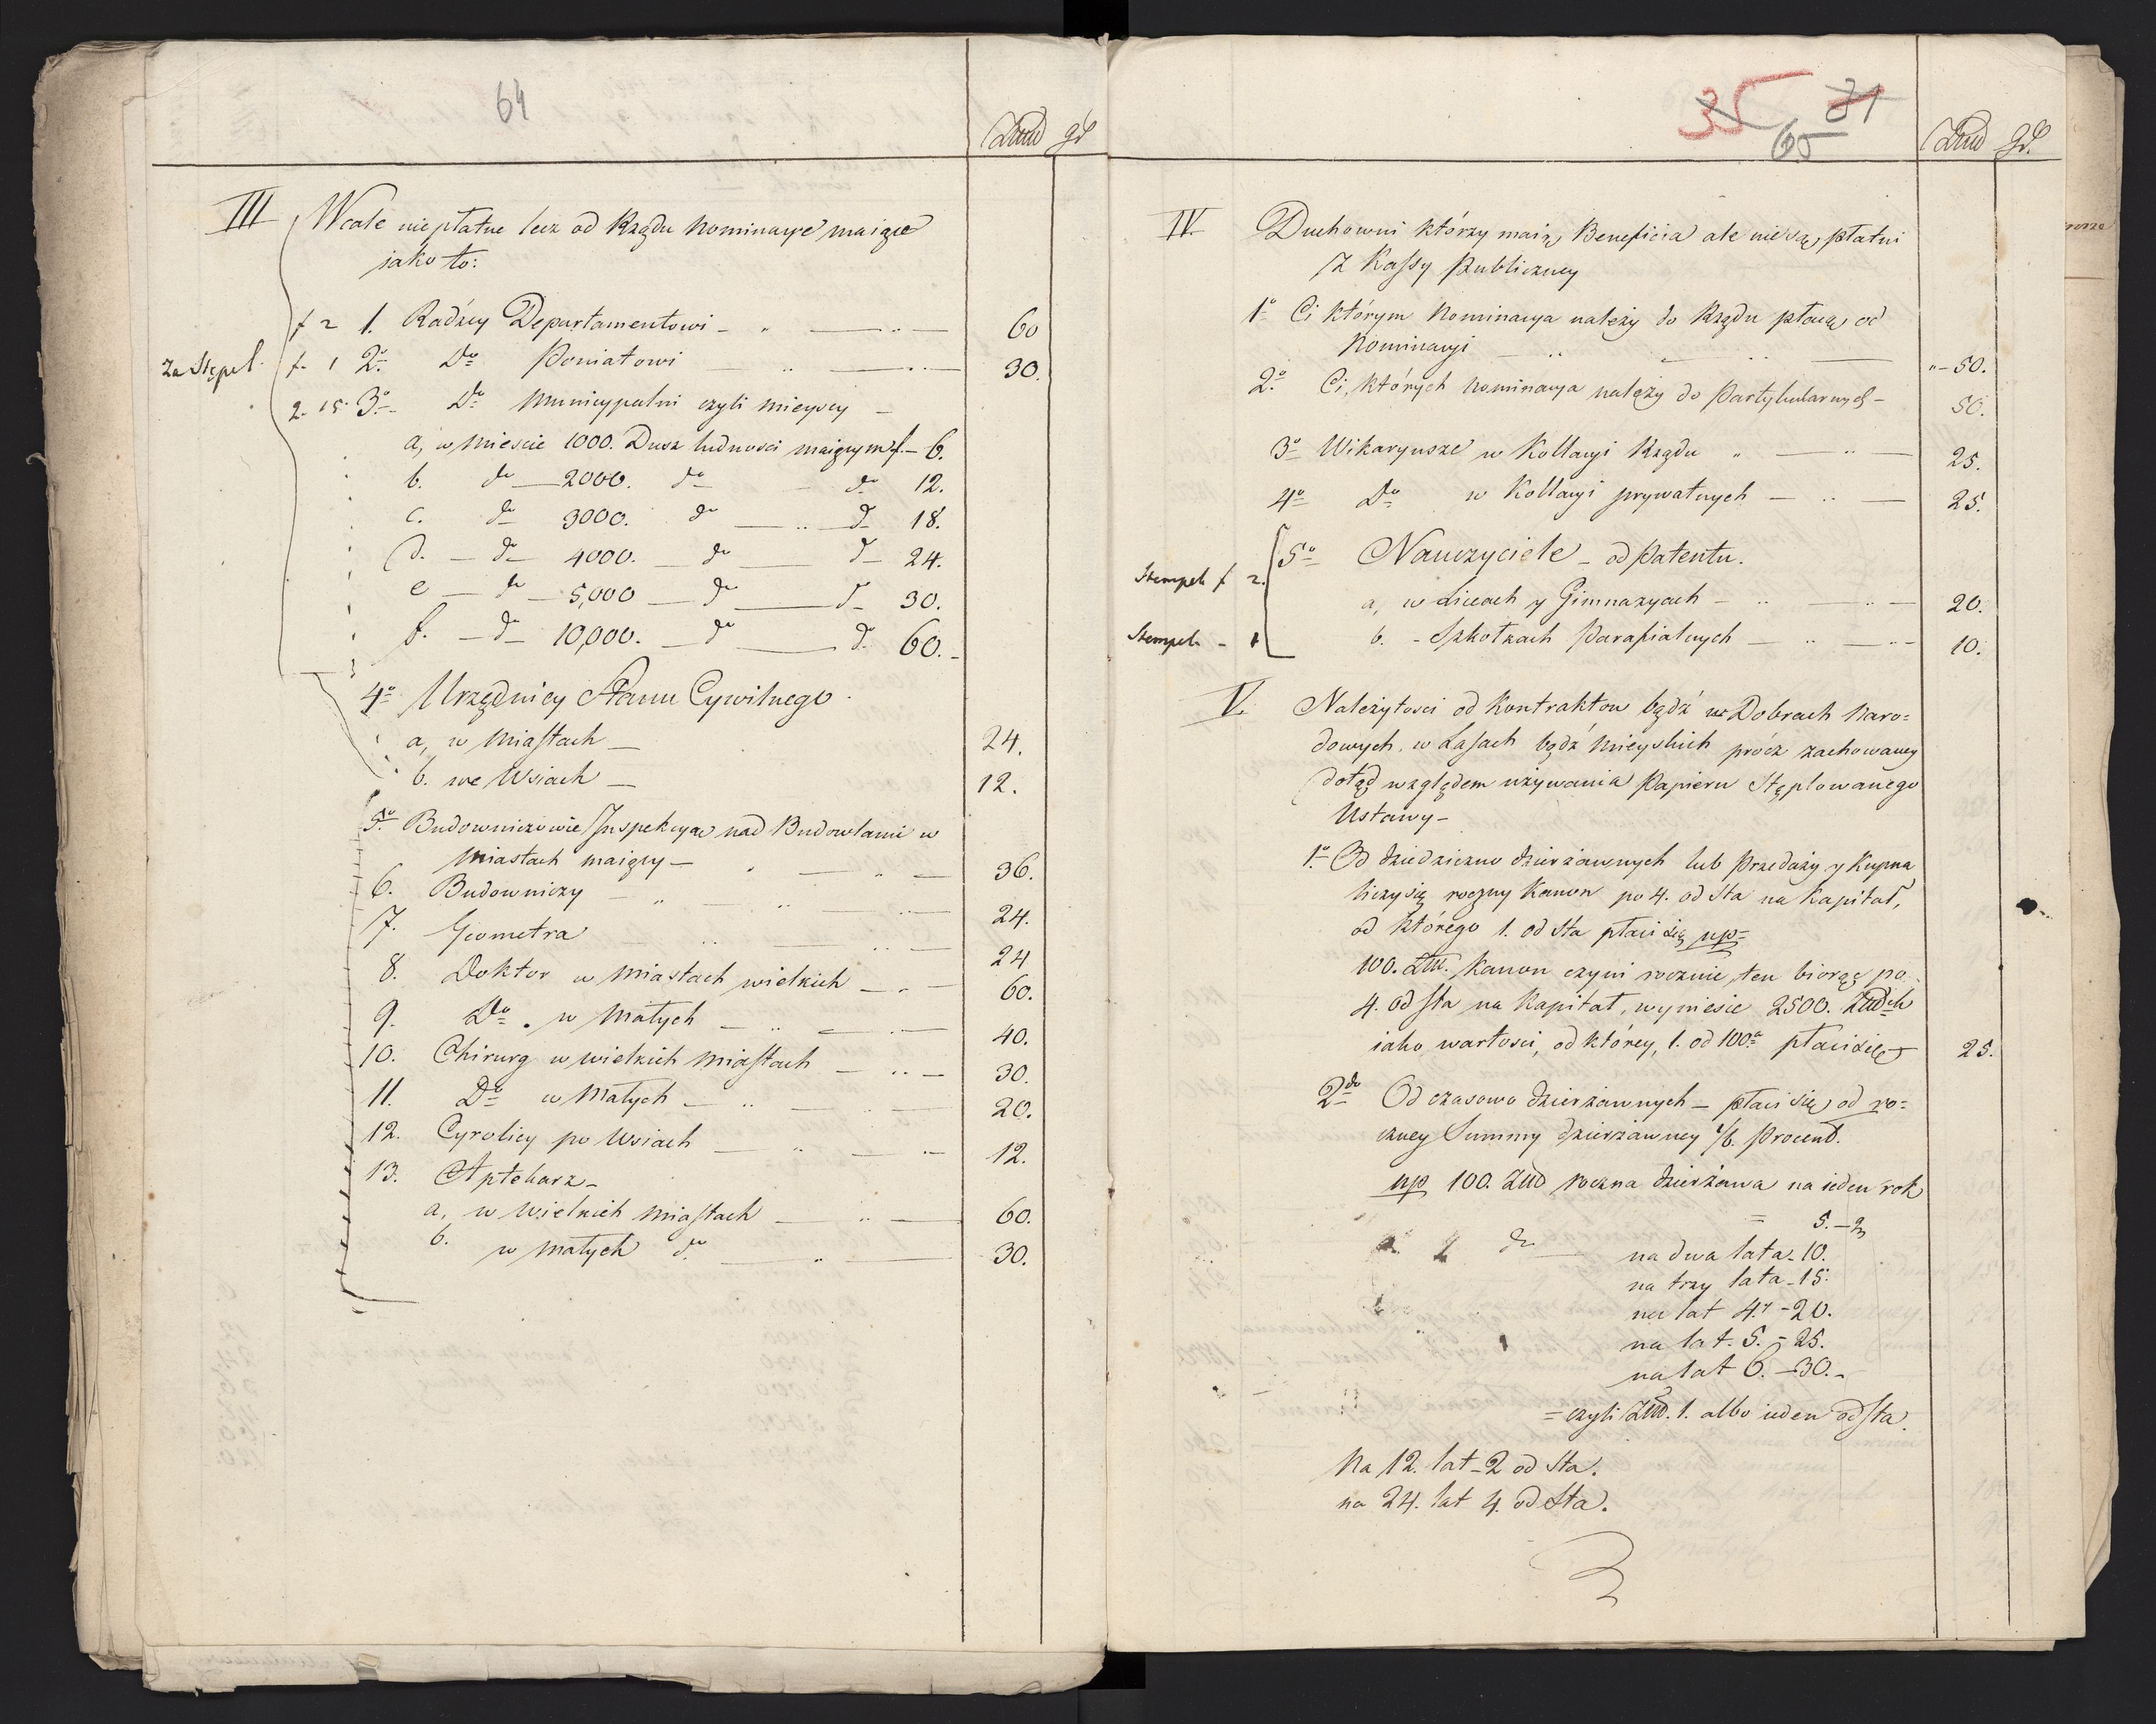 64
Złud gr
III Wcale niepłatne lecz od Rządu Nominacye maiące
jako to:
f 2 1. Radźcy Departamentowi - " — " — 60
Za Stępel. f. 1 2o Do Powiatowi " — " — 30.
2. 15. 3o Do Municypalni czyli mieyscy —
a, w mieście 1000. Dusz ludności maiącym f. — 6.
b. do — 2000. do — do 12.
c. do 3000. do — " — do 18.
d. — do — 4000. — do — do — 24.
e — do — 5,000 — do — do — 30.
f. — do — 10,000. — do — do 60. -
4o Urzędnicy Stanu Cywilnego.
a, w Miastach — 24.
b. we Wsiach — 12.
5o Budowniczowie Inspekcyą nad Budowlami w
Miastach maiący — " — " — 36.
6. Budowniczy — " — " — 24.
7. Geometra " — " — 24
8. Doktor w Miastach wielkich — " — 60.
9. Do. w Małych — " — " — 40.
10. Chirurg w wielkich Miastach — " — 30.
11. Do w Małych — " — " — 20.
12. Cyrolicy po Wsiach — " — " — 12.
13. Aptekarz —
a, w Wielkich Miastach — " — 60.
b. w Małych do — " — 30.
35 31
65
Złud gr.
IV. Duchowni którzy maią Beneficia ale nie są płatni
z Kassy Publiczney
1o Ci którym Nominacya należy do Rządu płacą od
Nominacyi — " — " — " — 50.
2o Ci, których nominacya należy do Partykularnych — 50.
3o Wikaryusze w Kollacyi Rządu " — " — 25.
4o Do w Kollacyi prywatnych — " — 25.
5o Nauczyciele — od Patentu.
Stempel f 2. a, w Liceach y Gimnazyach — " — " — 20.
Stempel — 1 b. - Szkołkach Parafialnych — " — " — 10.
V. Należytości od Kontraktow bądź w Dobrach Naro=
dowych, w Lasach bądź Mieyskich prócz zachowaney
dotąd względem używania Papieru Stęplowanego
Ustawy —
1o Od dziedziczno dzierżawnych lub Przedaży y Kupna
liczy się roczny Kanon po 4. od Sta na Kapitał,
od którego 1. od Sta płaci się np=
100. Złu. Kanon czyni rocznie, ten biorąc po
4. od Sta na Kapitał, wyniesie 2500. Złudch
iako wartości, od którey, 1. od 100a płaci się — 25.
2do Od czasowo dzierżawnych — płaci się od ro=
czney Summy dzierżawney 1/6. Procent.
np 100. Złud roczna dzierżawa na ieden rok
= 5. —
do — na dwa lata - 10.
na trzy lata - 15.
na lat 4. - 20.
na lat. 5. - 25.
na lat 6. - 30. -
= czyli Złud. 1. albo ieden od Sta.
Na 12. lat - 2 od Sta.
na 24. lat 4. od Sta.